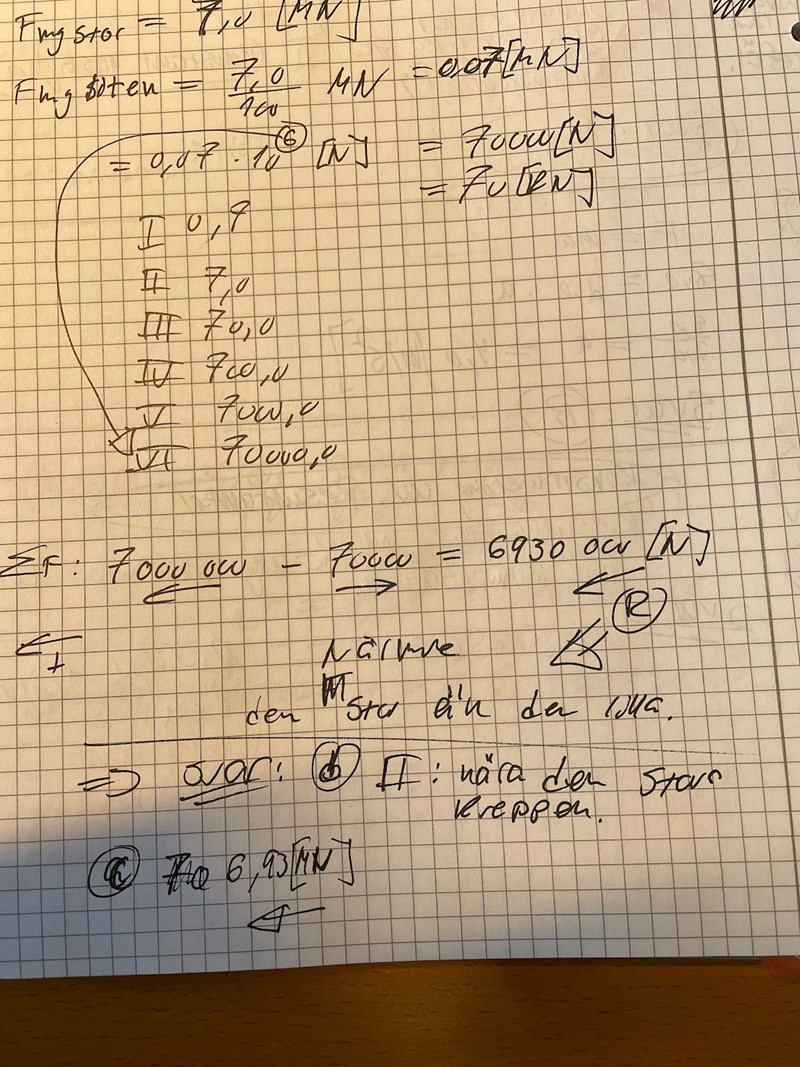 Fmg stor = 7,0 [MN]
Fmg liten = 7,0/100 MN = 0,07 [MN]
= 0,07 · 10⁶ [N] = 70000 [N]
= 70 [kN]
I 0,7
II 7,0
III 70,0
IV 700,0
V 7000,0
VI 70000,0
ΣF: 7000 000 - 70000 = 6930 000 [N]
← → ←
← + Närmre R
den stor än den lilla.
=> svar: b II: nära den stora
kroppen.
c 6,93 [MN]
←